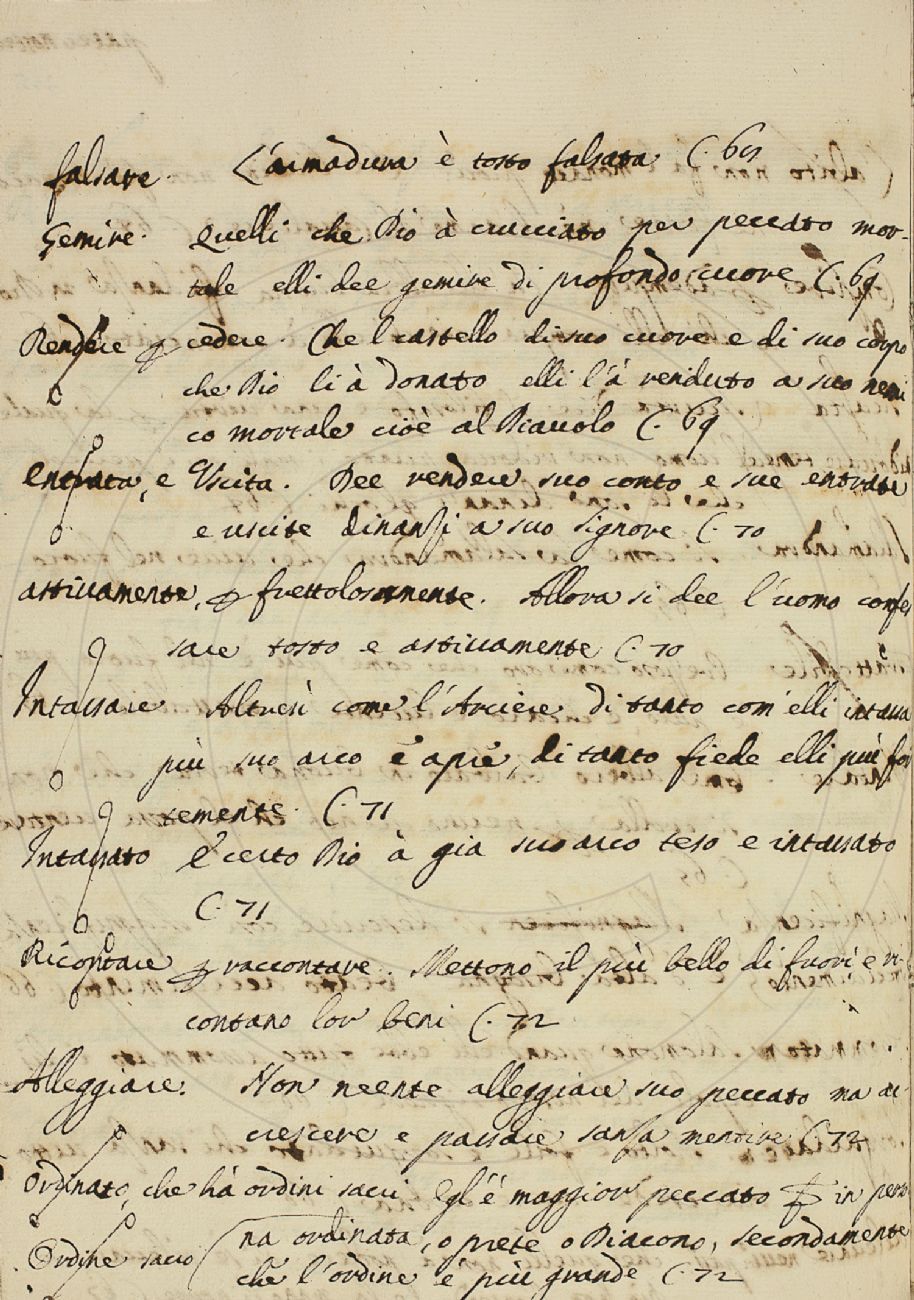 falsare. L'armadura è tosto falsata C. 69
Gemire. Quelli che Dio à crucciato per peccato mor-
tale elli dee gemire di profondo cuore C. 69.
Rendere cedere. Che l castello di suo cuore e di suo corpo
che Dio li à donato elli l'à renduto a suo nemi
co mortale cioè al Diavolo C. 69
Entrata, e Uscita. Dee rendere suo conto e sue entrate
e uscite dinanzi a suo signore C. 70
astivamente, frettolosamente. Allora si dee l'uomo confes
sare tosto e astivamente C. 70
Intassare Altresì come l'Arciere di tanto com'elli intassa
più suo arco e apre, di tanto fiede elli più for
temente. C. 71
Intassato E certo Dio à gia suo arco teso e intassato
C. 71
Ricontare raccontare. Mettono il più bello di fuori e ri-
contano lor beni C. 72
Alleggiare. Non neente alleggiare suo peccato ma ac-
crescere e passare sanza mentire C. 72
Ordinato, che hà ordini sacri Egl'è maggior peccato in perso
Ordine sacro na ordinata, o prete o Diacono, secondamente
che l'ordine è più grande C. 72